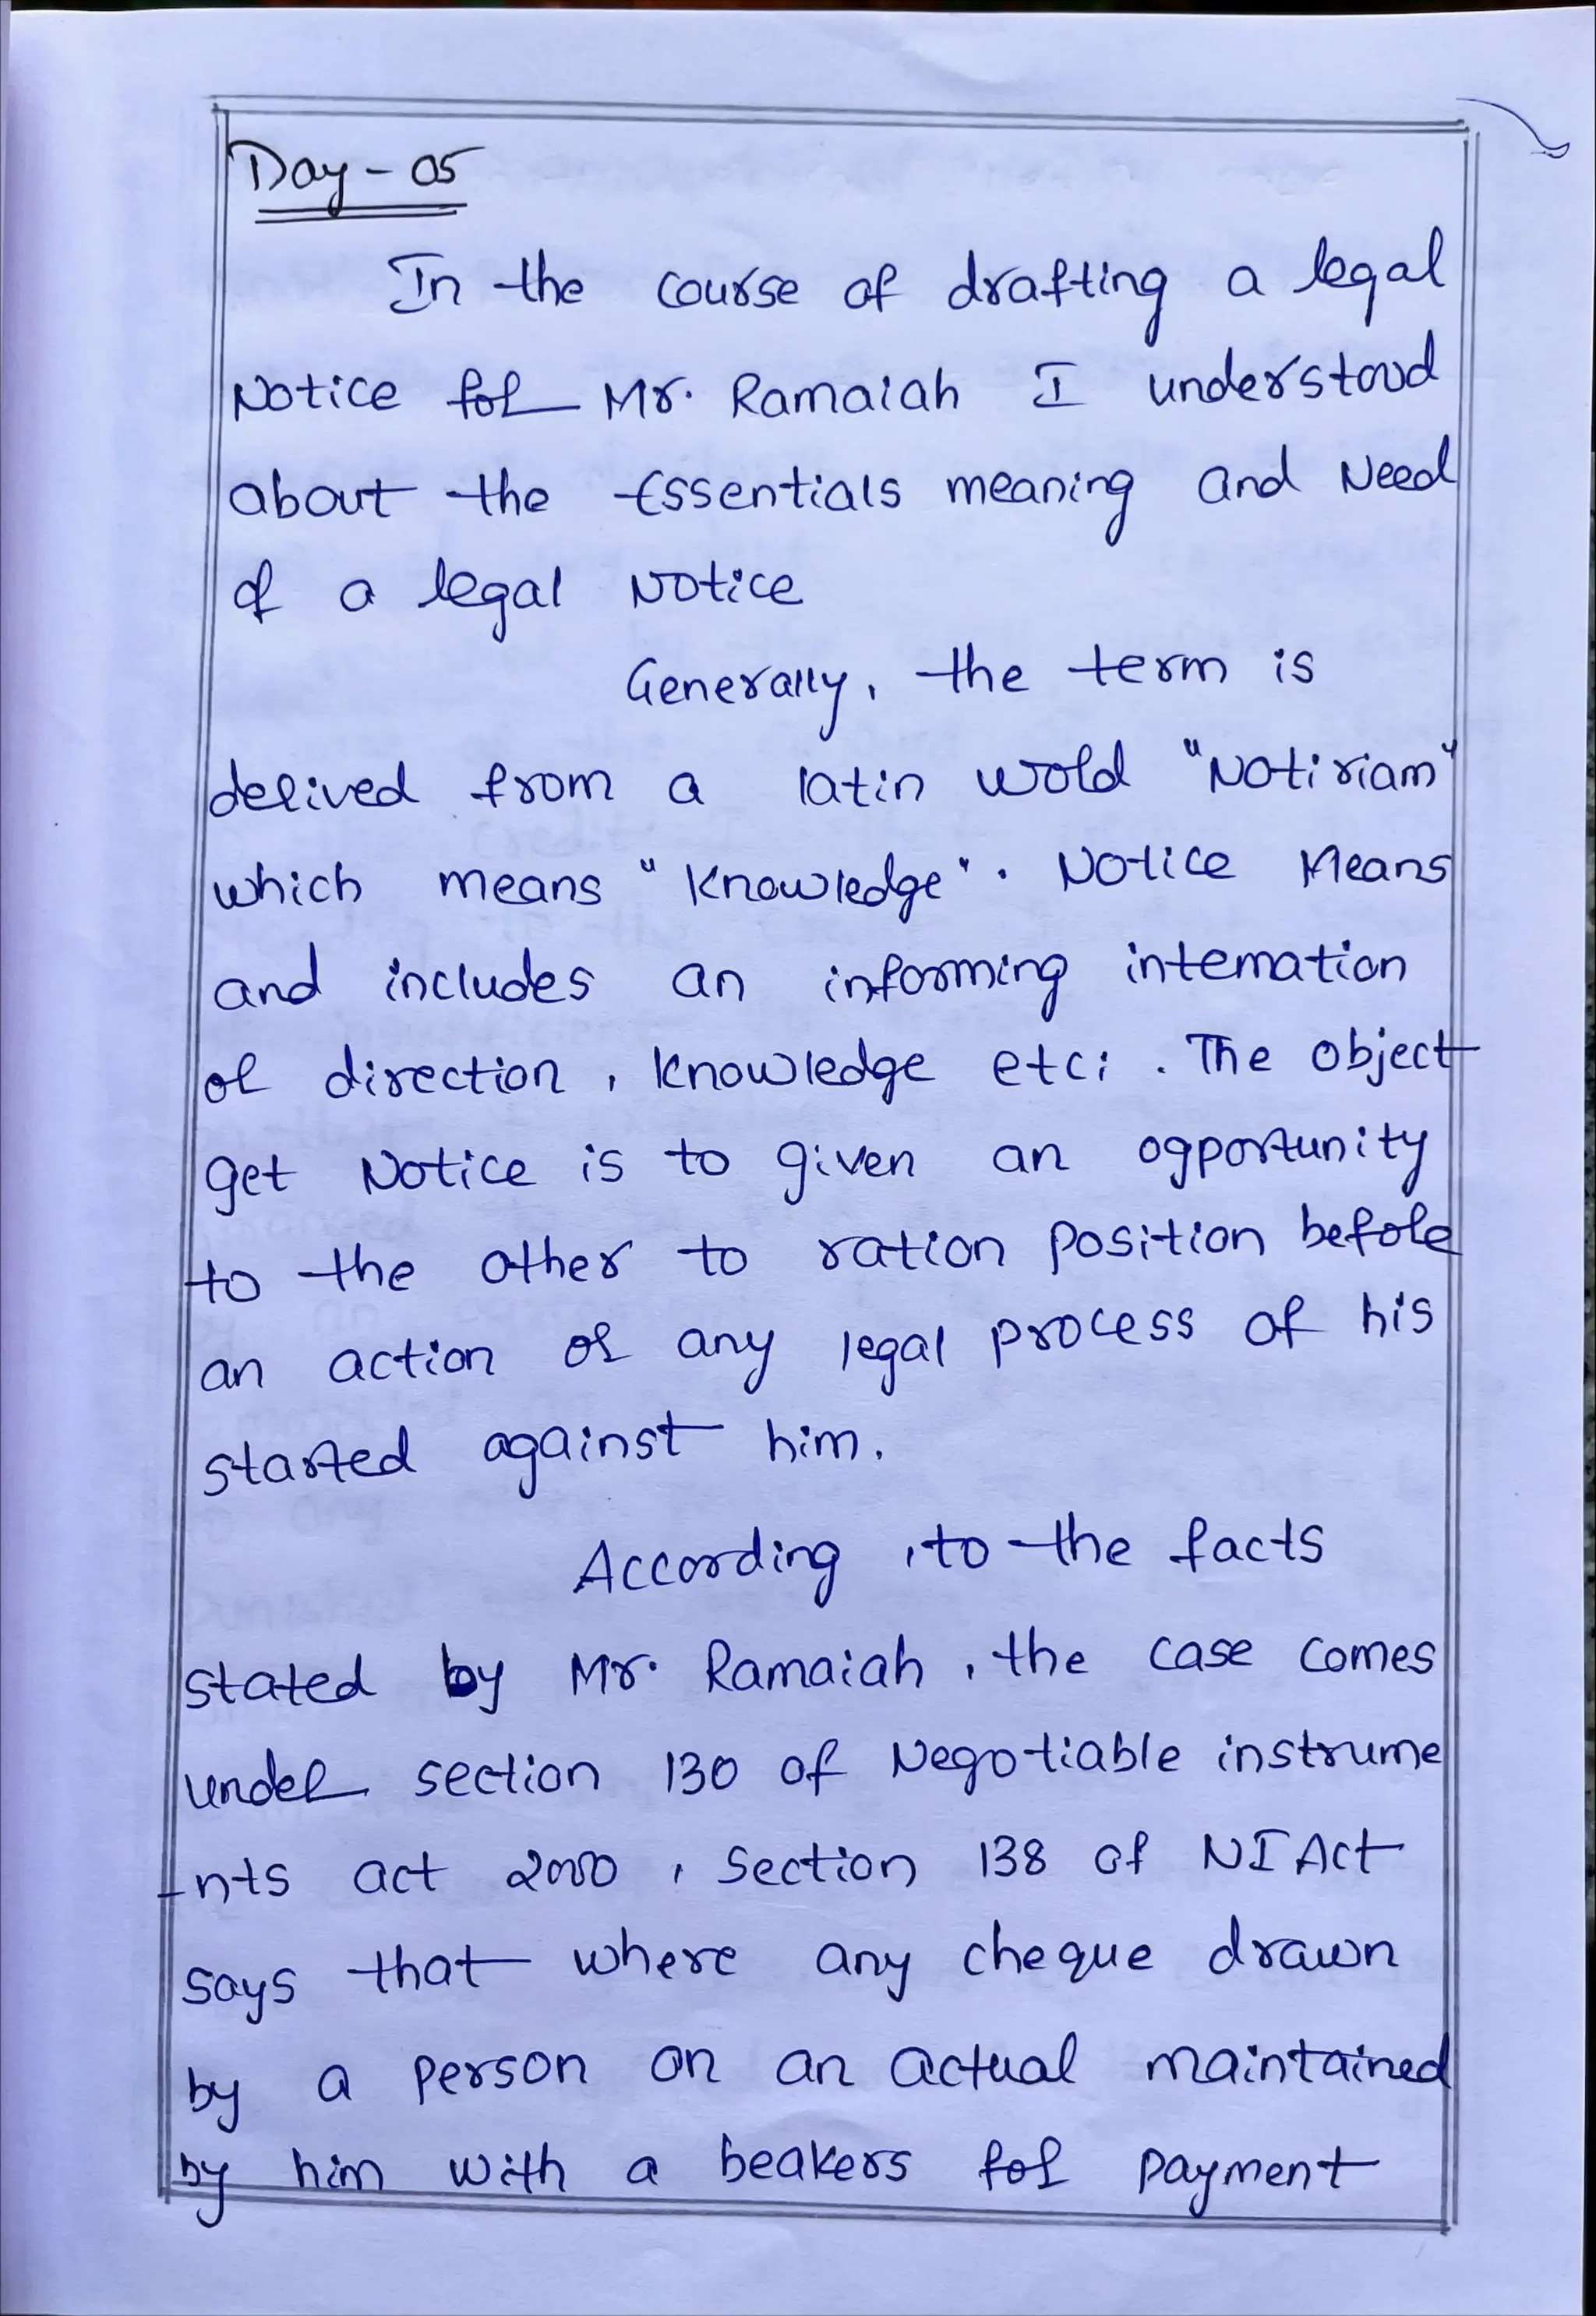 Day - 05
In the course of drafting a legal
Notice for Mr. Ramaiah I understood
about the Essentials meaning and Need
of a legal Notice
Generally, the term is
derived from a latin word "Notiriam"
which means "Knowledge". Notice Means
and includes an informing intemation
of direction, Knowledge etc; . The object
get Notice is to given an ogportunity
to the other to ration position before
an action of any legal process of his
started against him.
According , to the facts
stated by Mr. Ramaiah, the case comes
under section 130 of Negotiable instrume
-nts act 2000, Section 138 of NI Act
says that where any cheque drawn
by a person on an actual maintained
by him with a beakers for payment